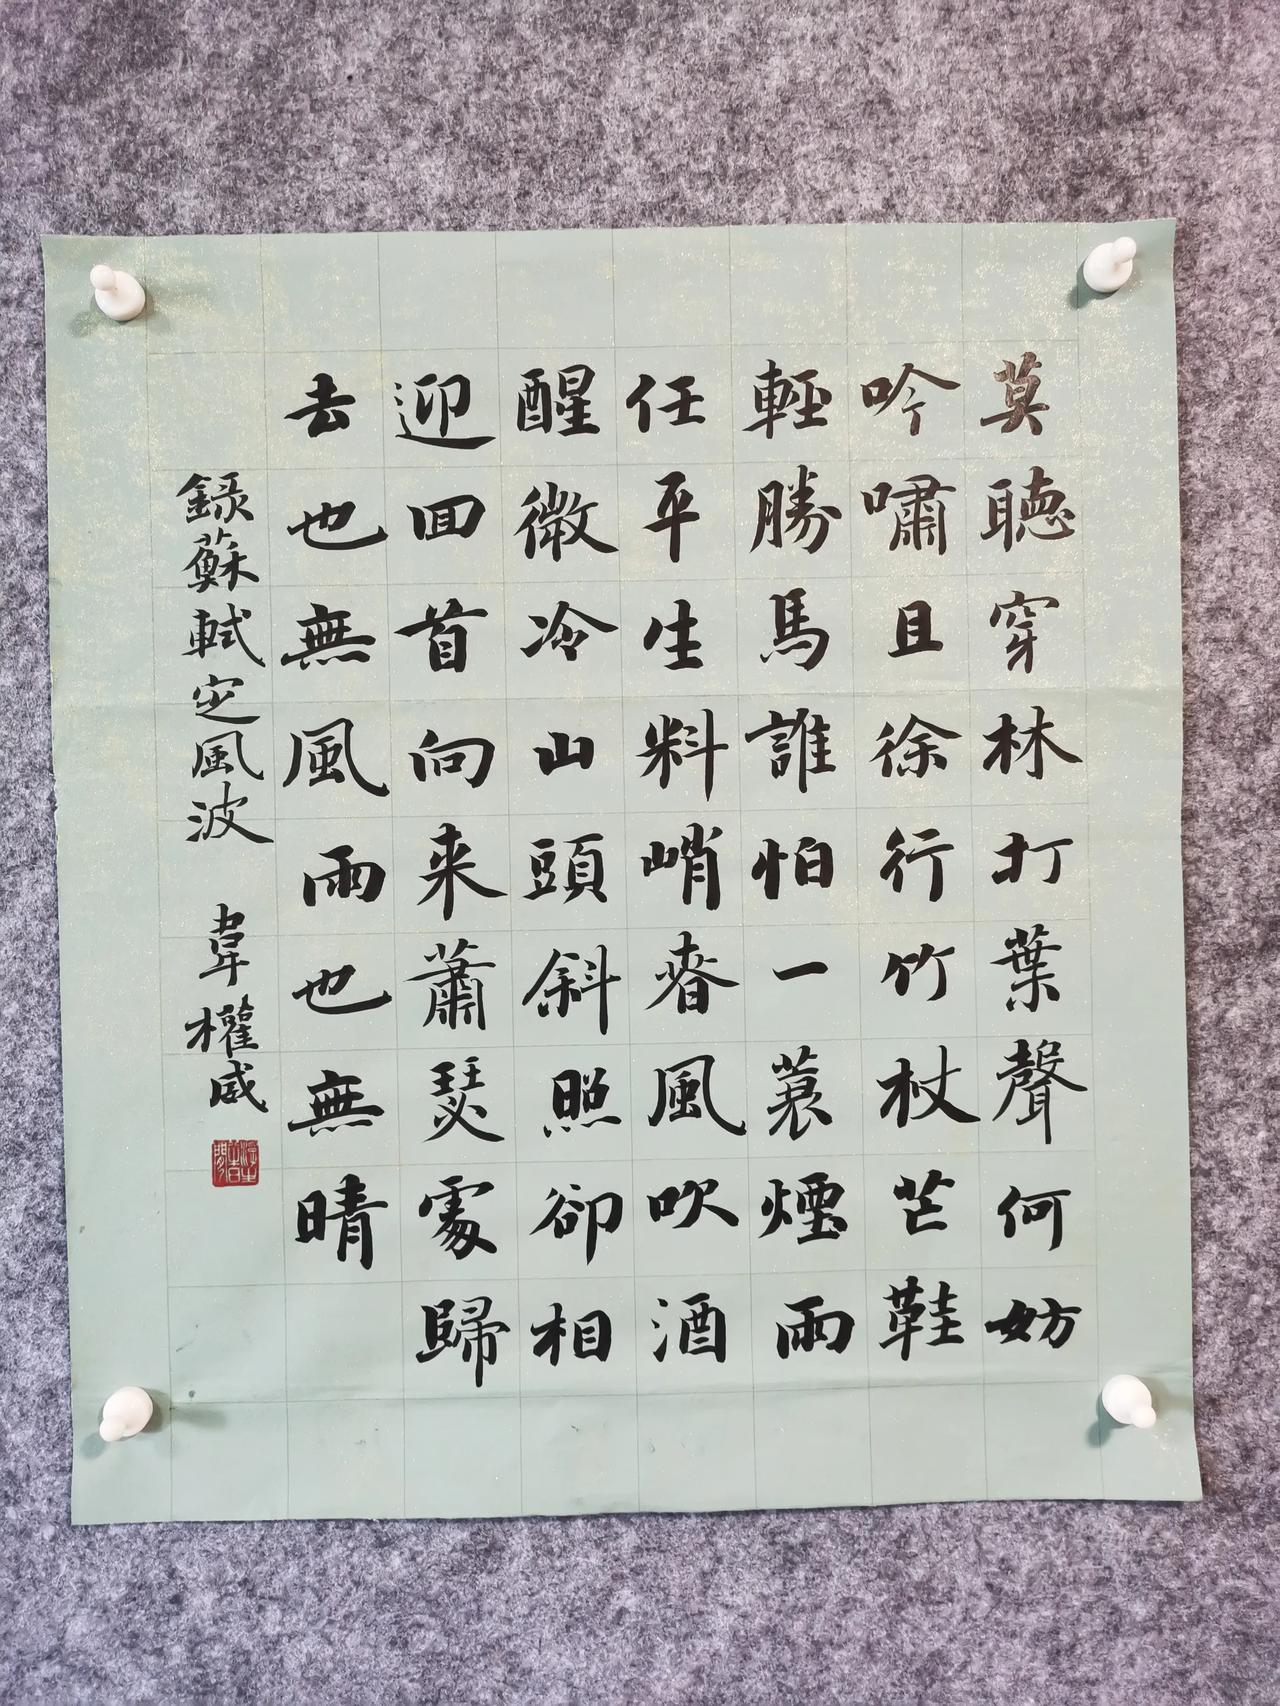 莫聽穿林打葉聲何妨
吟嘯且徐行竹杖芒鞋
輕勝馬誰怕一蓑煙雨
任平生料峭春風吹酒
醒微冷山頭斜照卻相
迎回首向来蕭瑟處歸
去也無風雨也無晴
錄蘇軾定風波 韋權威